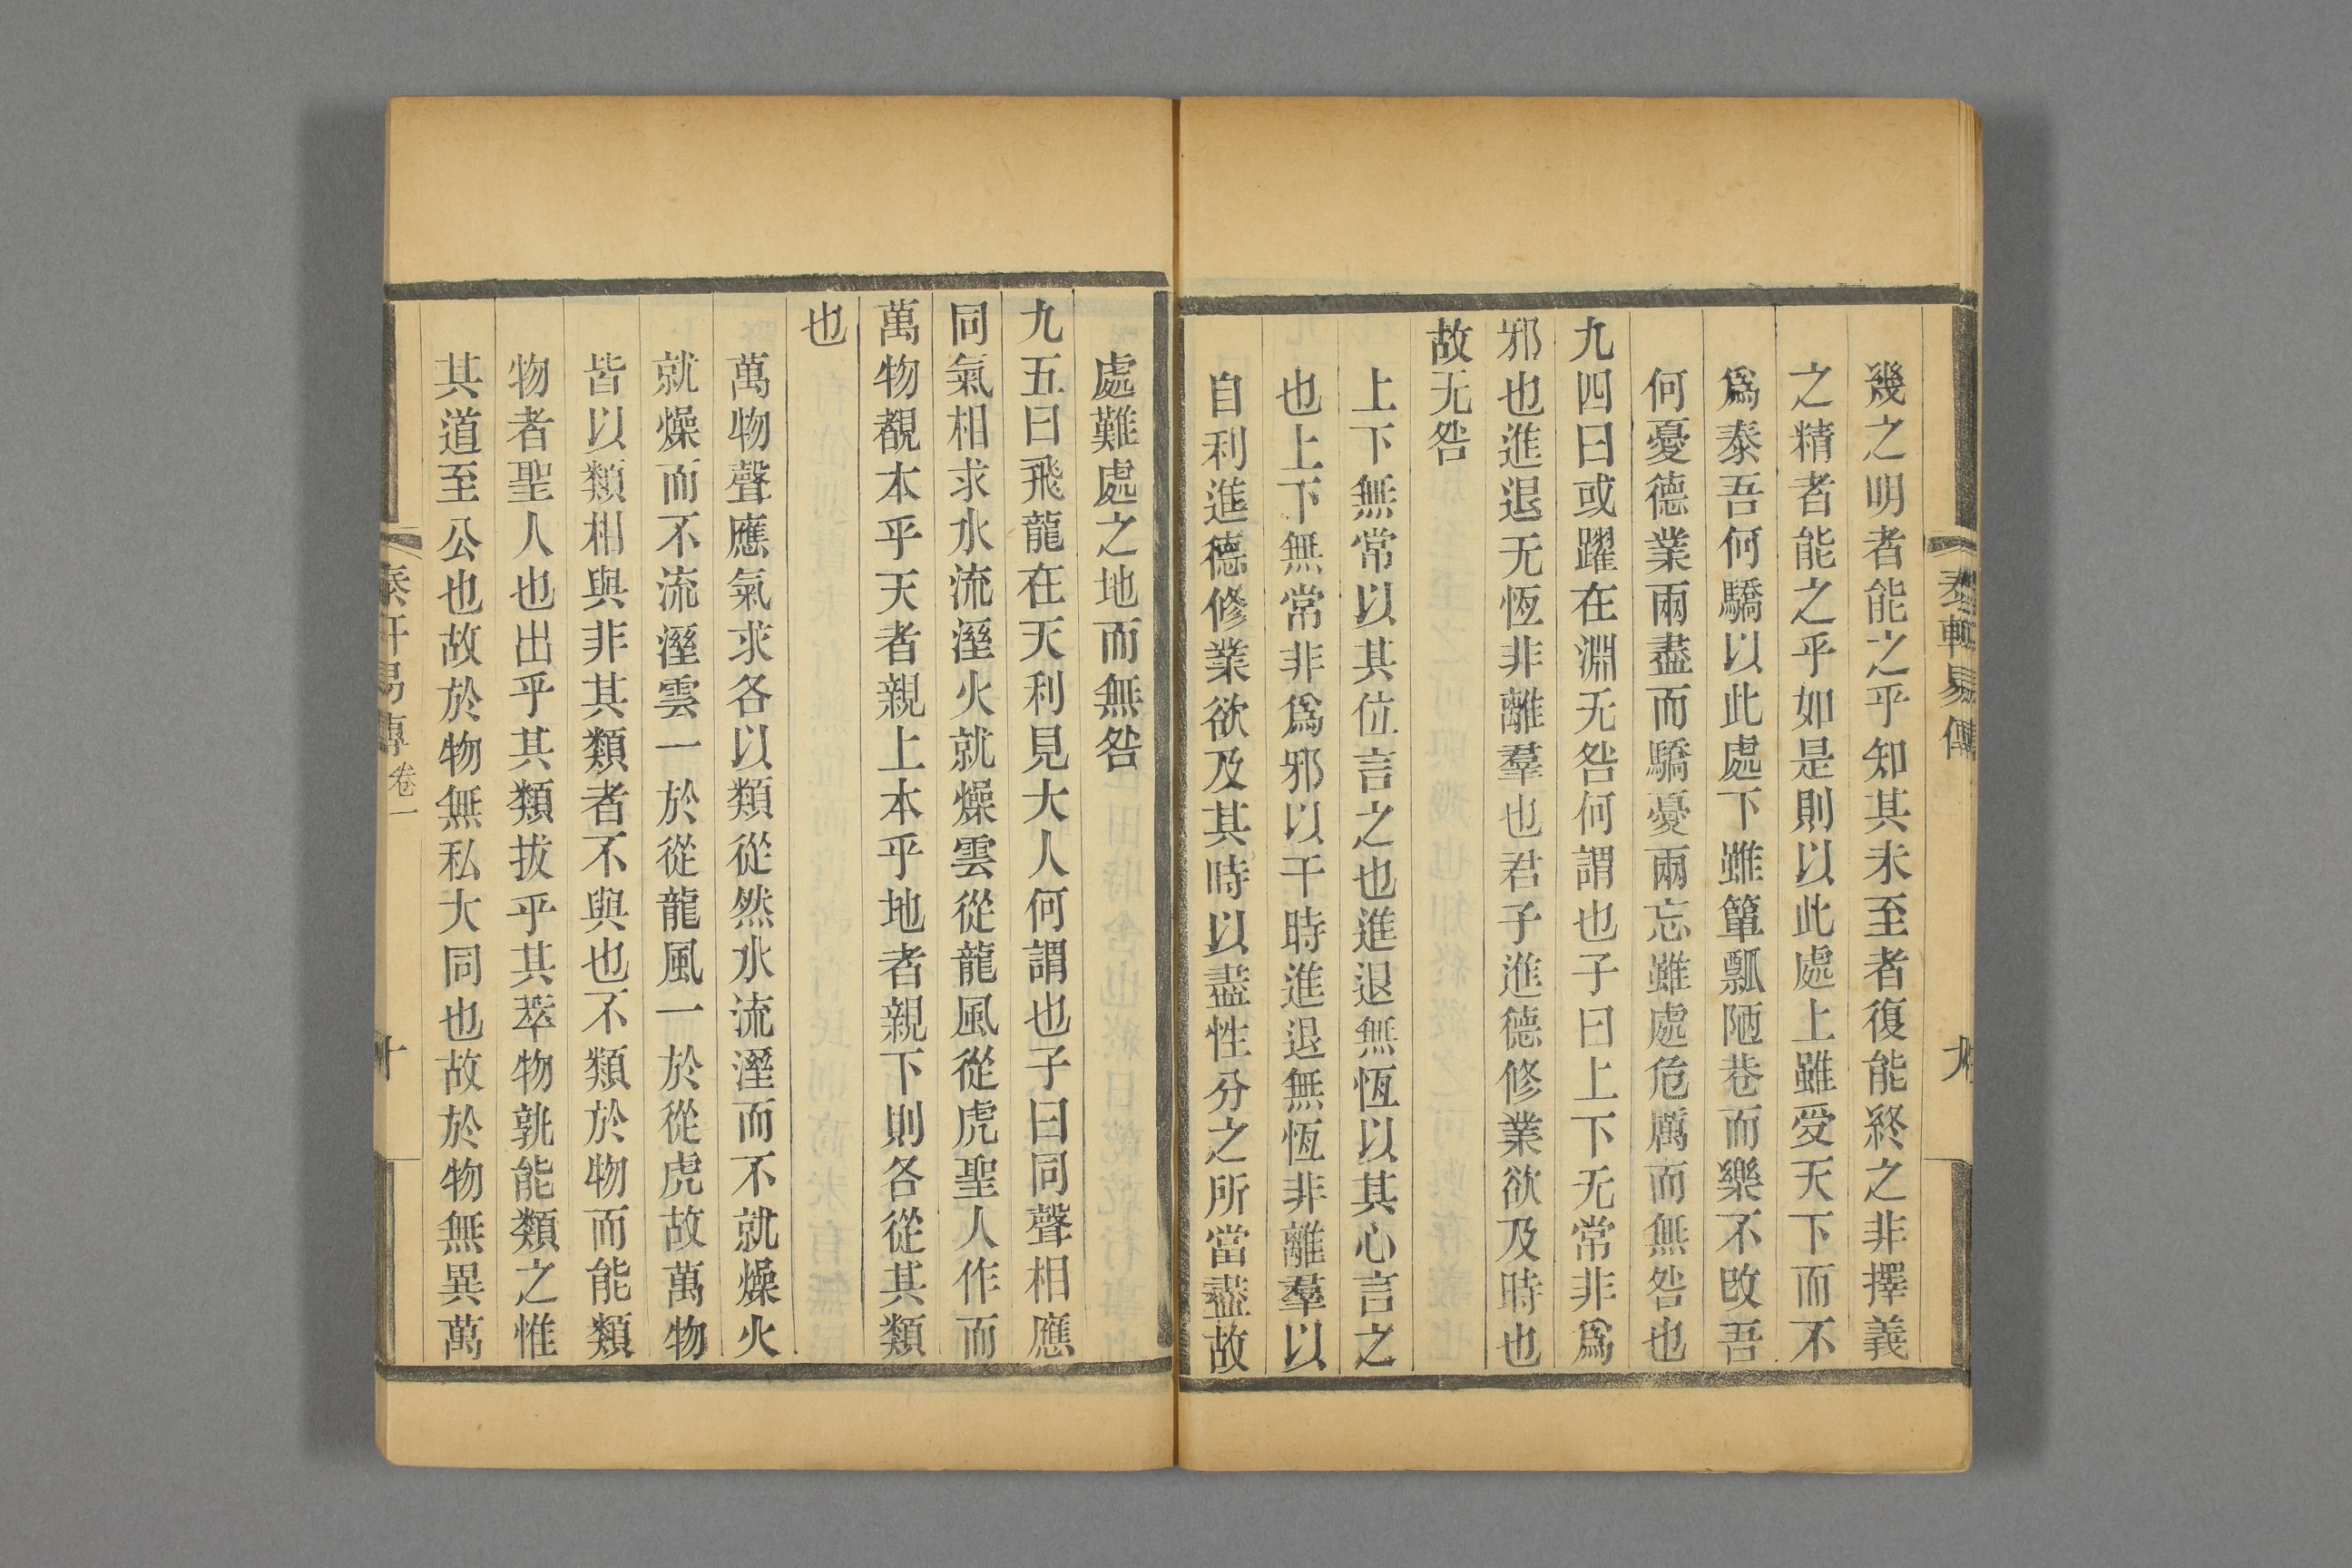 泰軒易傳
九
幾之明者能之乎知其未至者復能終之非擇義
之精者能之乎如是則以此處上雖受天下而不
爲泰吾何驕以此處下雖簞瓢陋巷而樂不改吾
何憂德業兩盡而驕憂兩忘雖處危厲而無咎也
九四曰或躍在淵无咎何謂也子曰上下无常非爲
邪也進退无恆非離羣也君子進德修業欲及時也
故无咎
上下無常以其位言之也進退無恆以其心言之
也上下無常非爲邪以干時進退無恆非離羣以
自利進德修業欲及其時以盡性分之所當盡故
處難處之地而無咎
九五曰飛龍在天利見大人何謂也子曰同聲相應
同氣相求水流溼火就燥雲從龍風從虎聖人作而
萬物覩本乎天者親上本乎地者親下則各從其類
也
萬物聲應氣求各以類從然水流溼而不就燥火
就燥而不流溼雲一於從龍風一於從虎故萬物
皆以類相與非其類者不與也不類於物而能類
物者聖人也出乎其類拔乎其萃物孰能類之惟
其道至公也故於物無私大同也故於物無異萬
泰軒易傳卷一
十